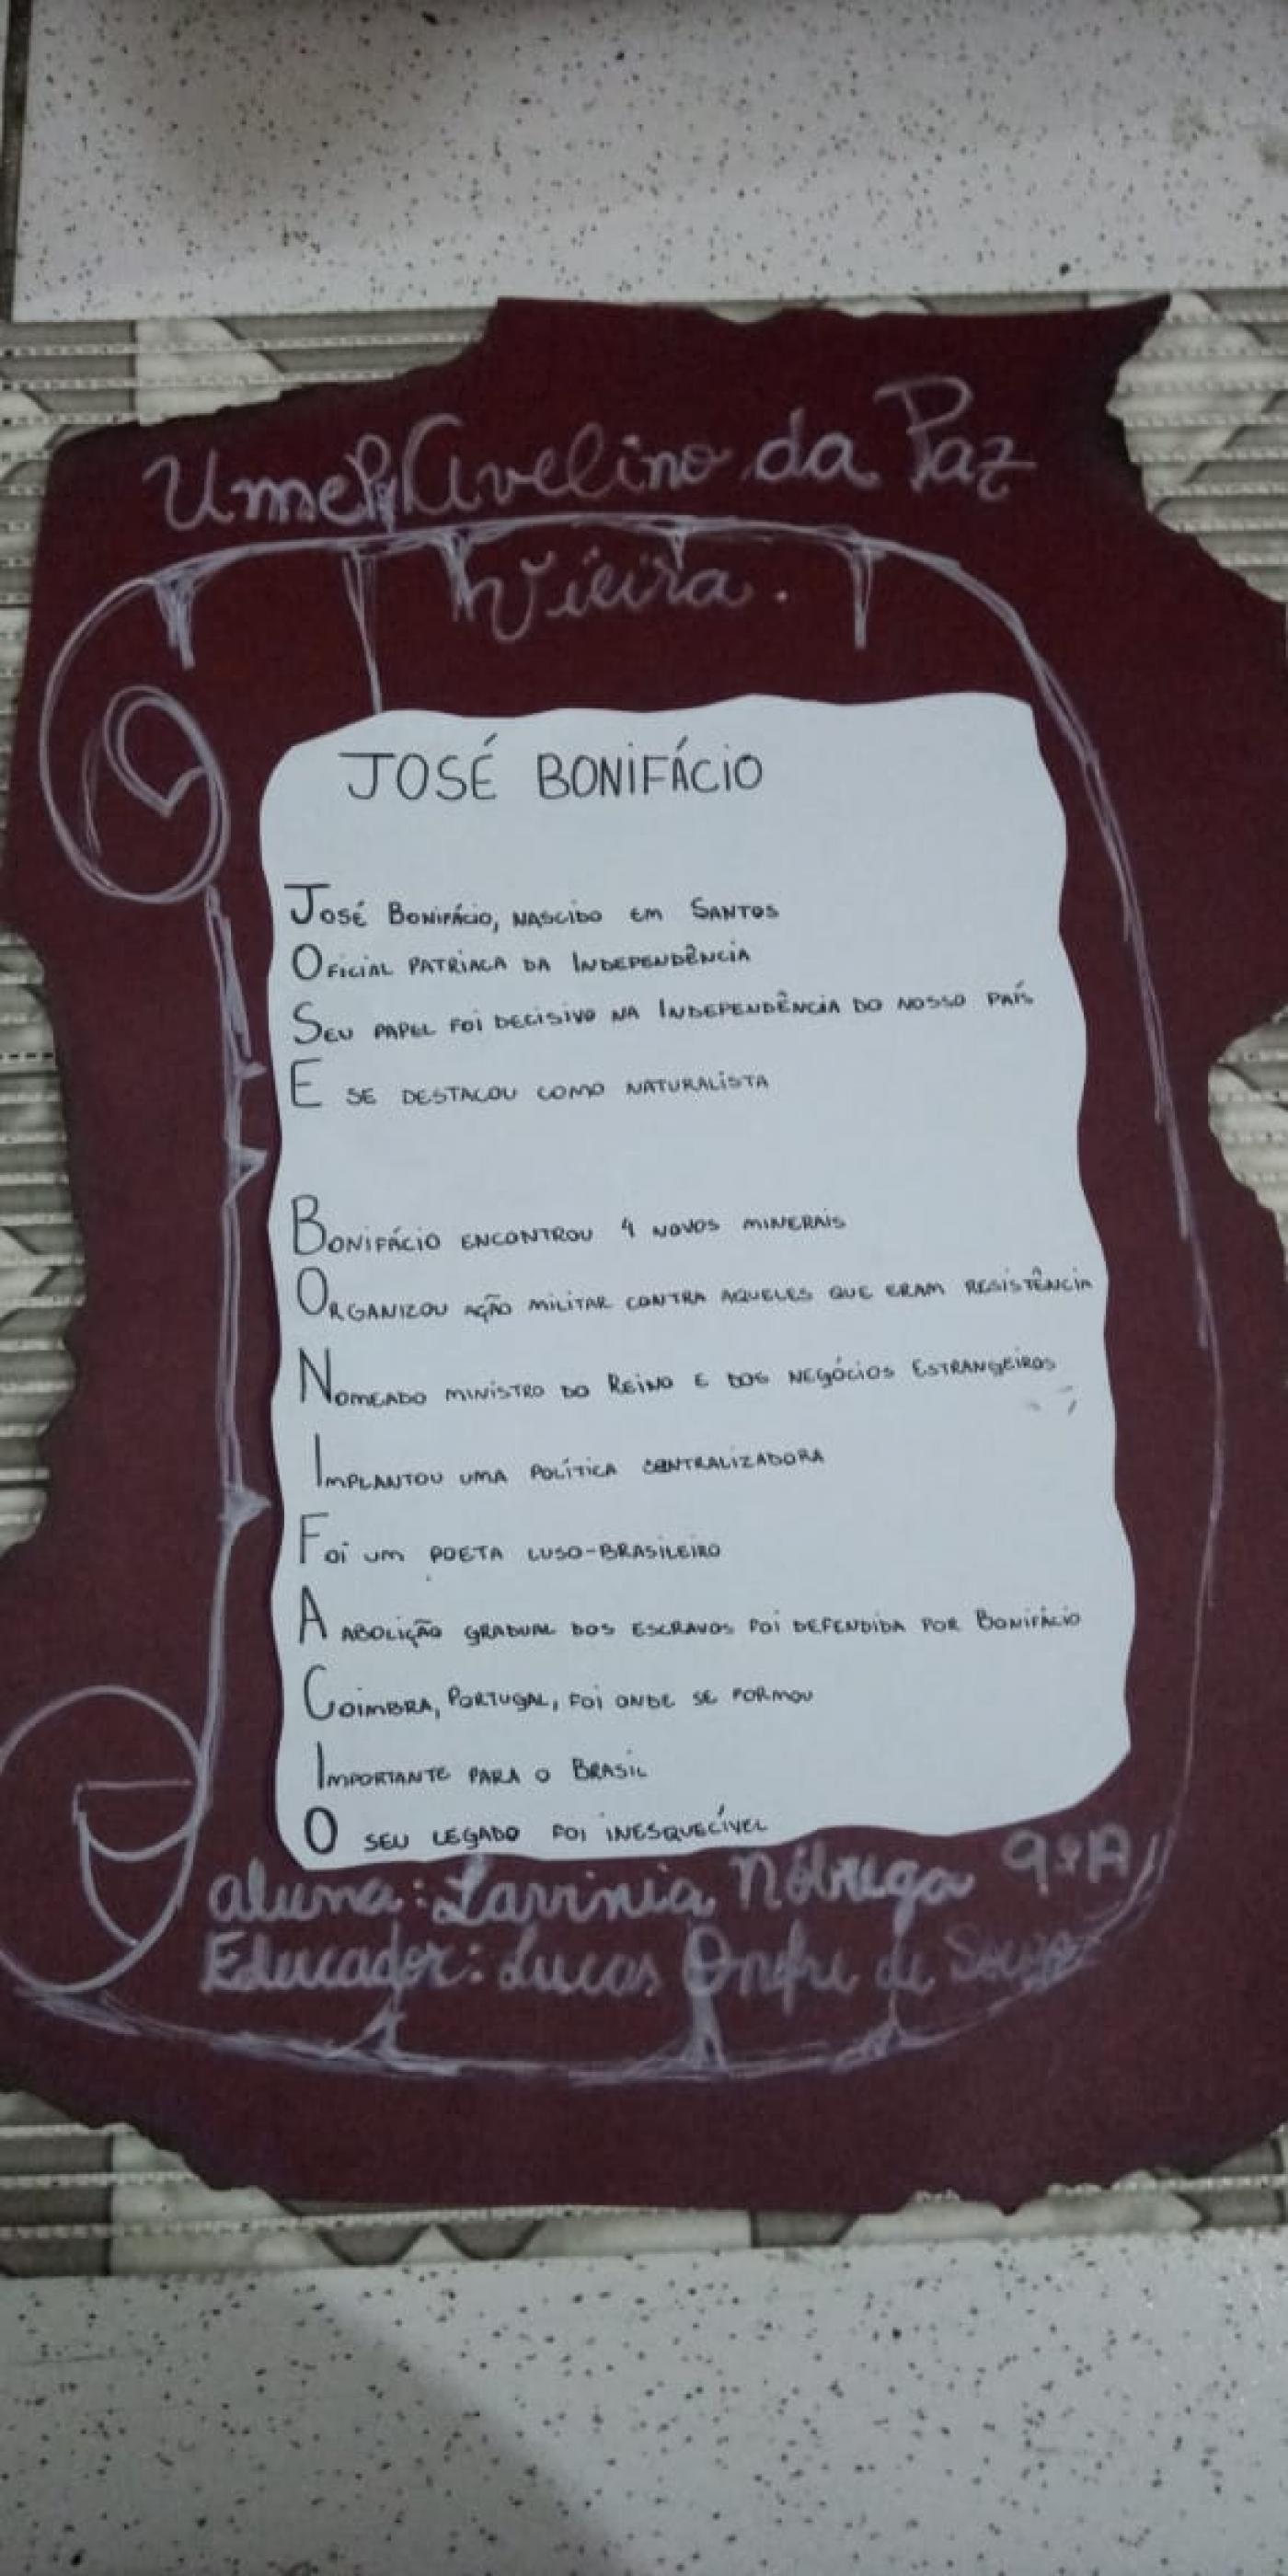 Ume Avelino da Paz
Vieira.
JOSÉ BONIFÁCIO
JOSÉ BONIFÁCIO, NASCIDO EM SANTOS
OFICIAL PATRIACA DA INDEPENDÊNCIA
SEU PAPEL FOI DECISIVO NA INDEPENDÊNCIA DO NOSSO PAÍS
E SE DESTACOU COMO NATURALISTA
BONIFÁCIO ENCONTROU 4 NOVOS MINERAIS
ORGANIZOU AÇÃO MILITAR CONTRA AQUELES QUE ERAM RESISTÊNCIA
NOMEADO MINISTRO DO REINO E DOS NEGÓCIOS ESTRANGEIROS
IMPLANTOU UMA POLÍTICA CENTRALIZADORA
FOI UM POETA LUSO-BRASILEIRO
A ABOLIÇÃO GRADUAL DOS ESCRAVOS FOI DEFENDIDA POR BONIFÁCIO
COIMBRA, PORTUGAL, FOI ONDE SE FORMOU
IMPORTANTE PARA O BRASIL
O SEU LEGADO FOI INESQUECÍVEL
aluna: Lavinia Nóbrega 9ºA
Educador: Lucas Onofre de Souza